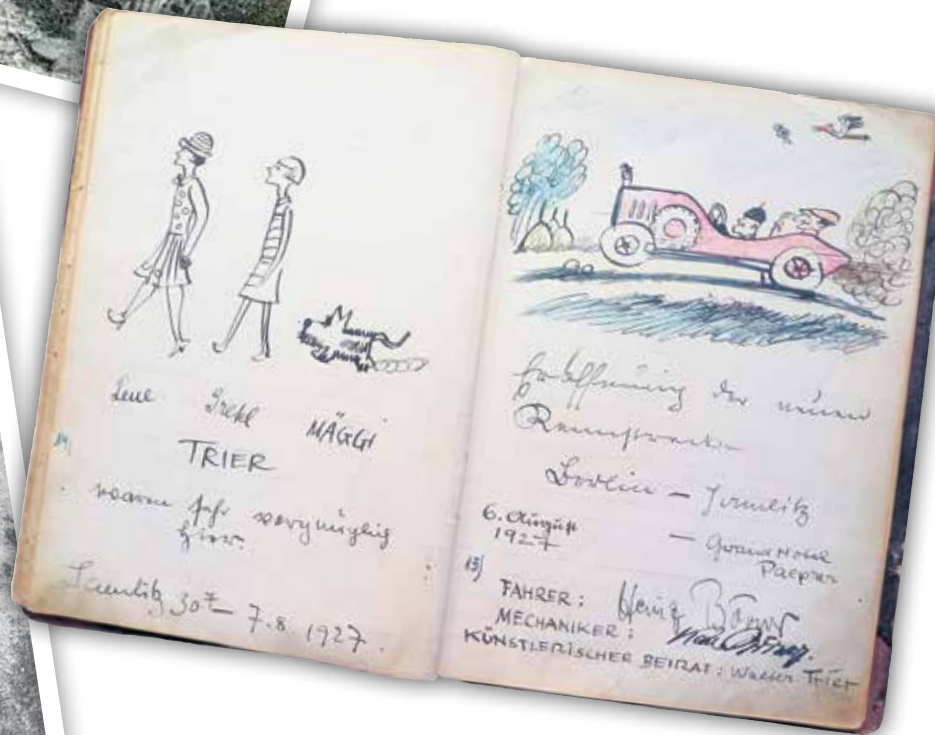 Lene Gretl MÄGGI
TRIER
14)
waren sehr vergnüglich
hier.
30.7. – 7.8. 1927.
Eröffnung der neuen
Rennstrecke
Berlin –
6. August
1927
– Grand Hotel
13)
FAHRER: Heinz
MECHANIKER:
KÜNSTLERISCHER BEIRAT: Walter Trier